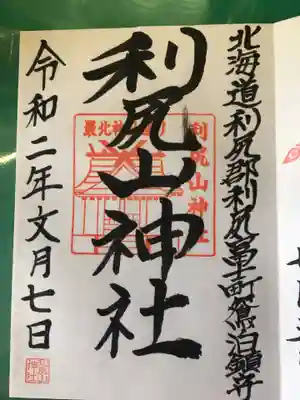 北海道利尻郡利尻富士町鴛泊鎮守
利尻山神社
利尻山神社
令和二年文月七日